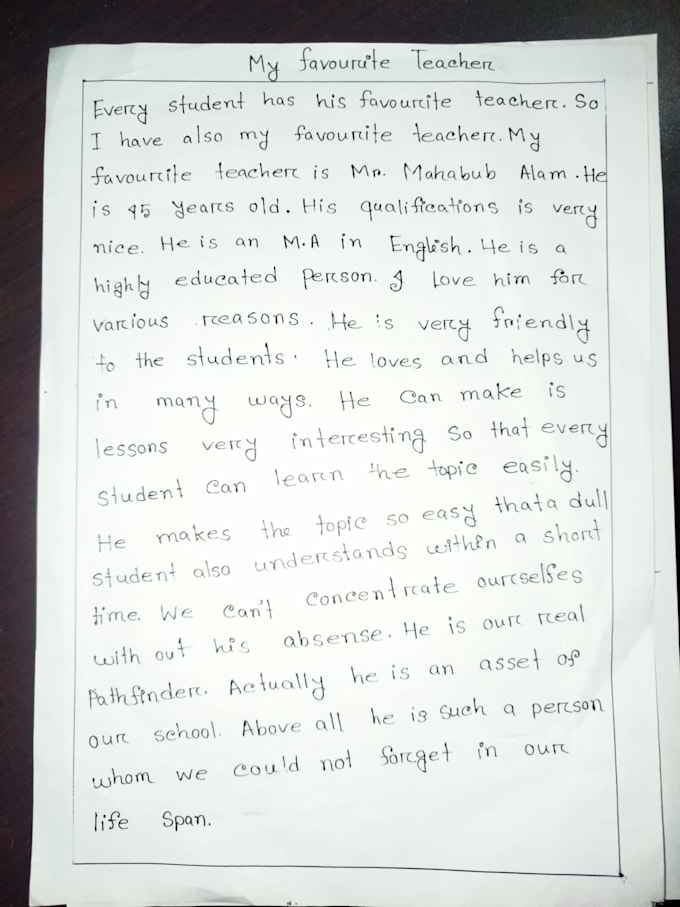 My favourite Teacher
Every student has his favourite teacher. So
I have also my favourite teacher. My
favourite teacher is Mr. Mahabub Alam. He
is 45 years old. His qualifications is very
nice. He is an M.A in English. He is a
highly educated person. I love him for
various reasons. He is very friendly
to the students. He loves and helps us
in many ways. He can make is
lessons very interesting so that every
student can learn the topic easily.
He makes the topic so easy that a dull
student also understands within a short
time. We can't concentrate ourselfes
with out his absense. He is our real
Pathfinder. Actually he is an asset of
our school. Above all he is such a person
whom we could not forget in our
life span.